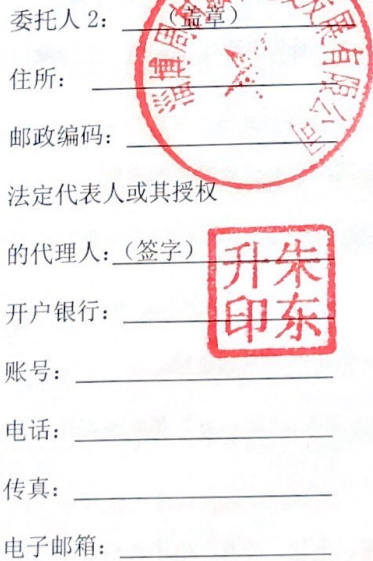 委托人 2：（盖章）
住所：
邮政编码：
法定代表人或其授权
的代理人：（签字）
开户银行：
账号：
电话：
传真：
电子邮箱：
展有限公司
朱东
升印